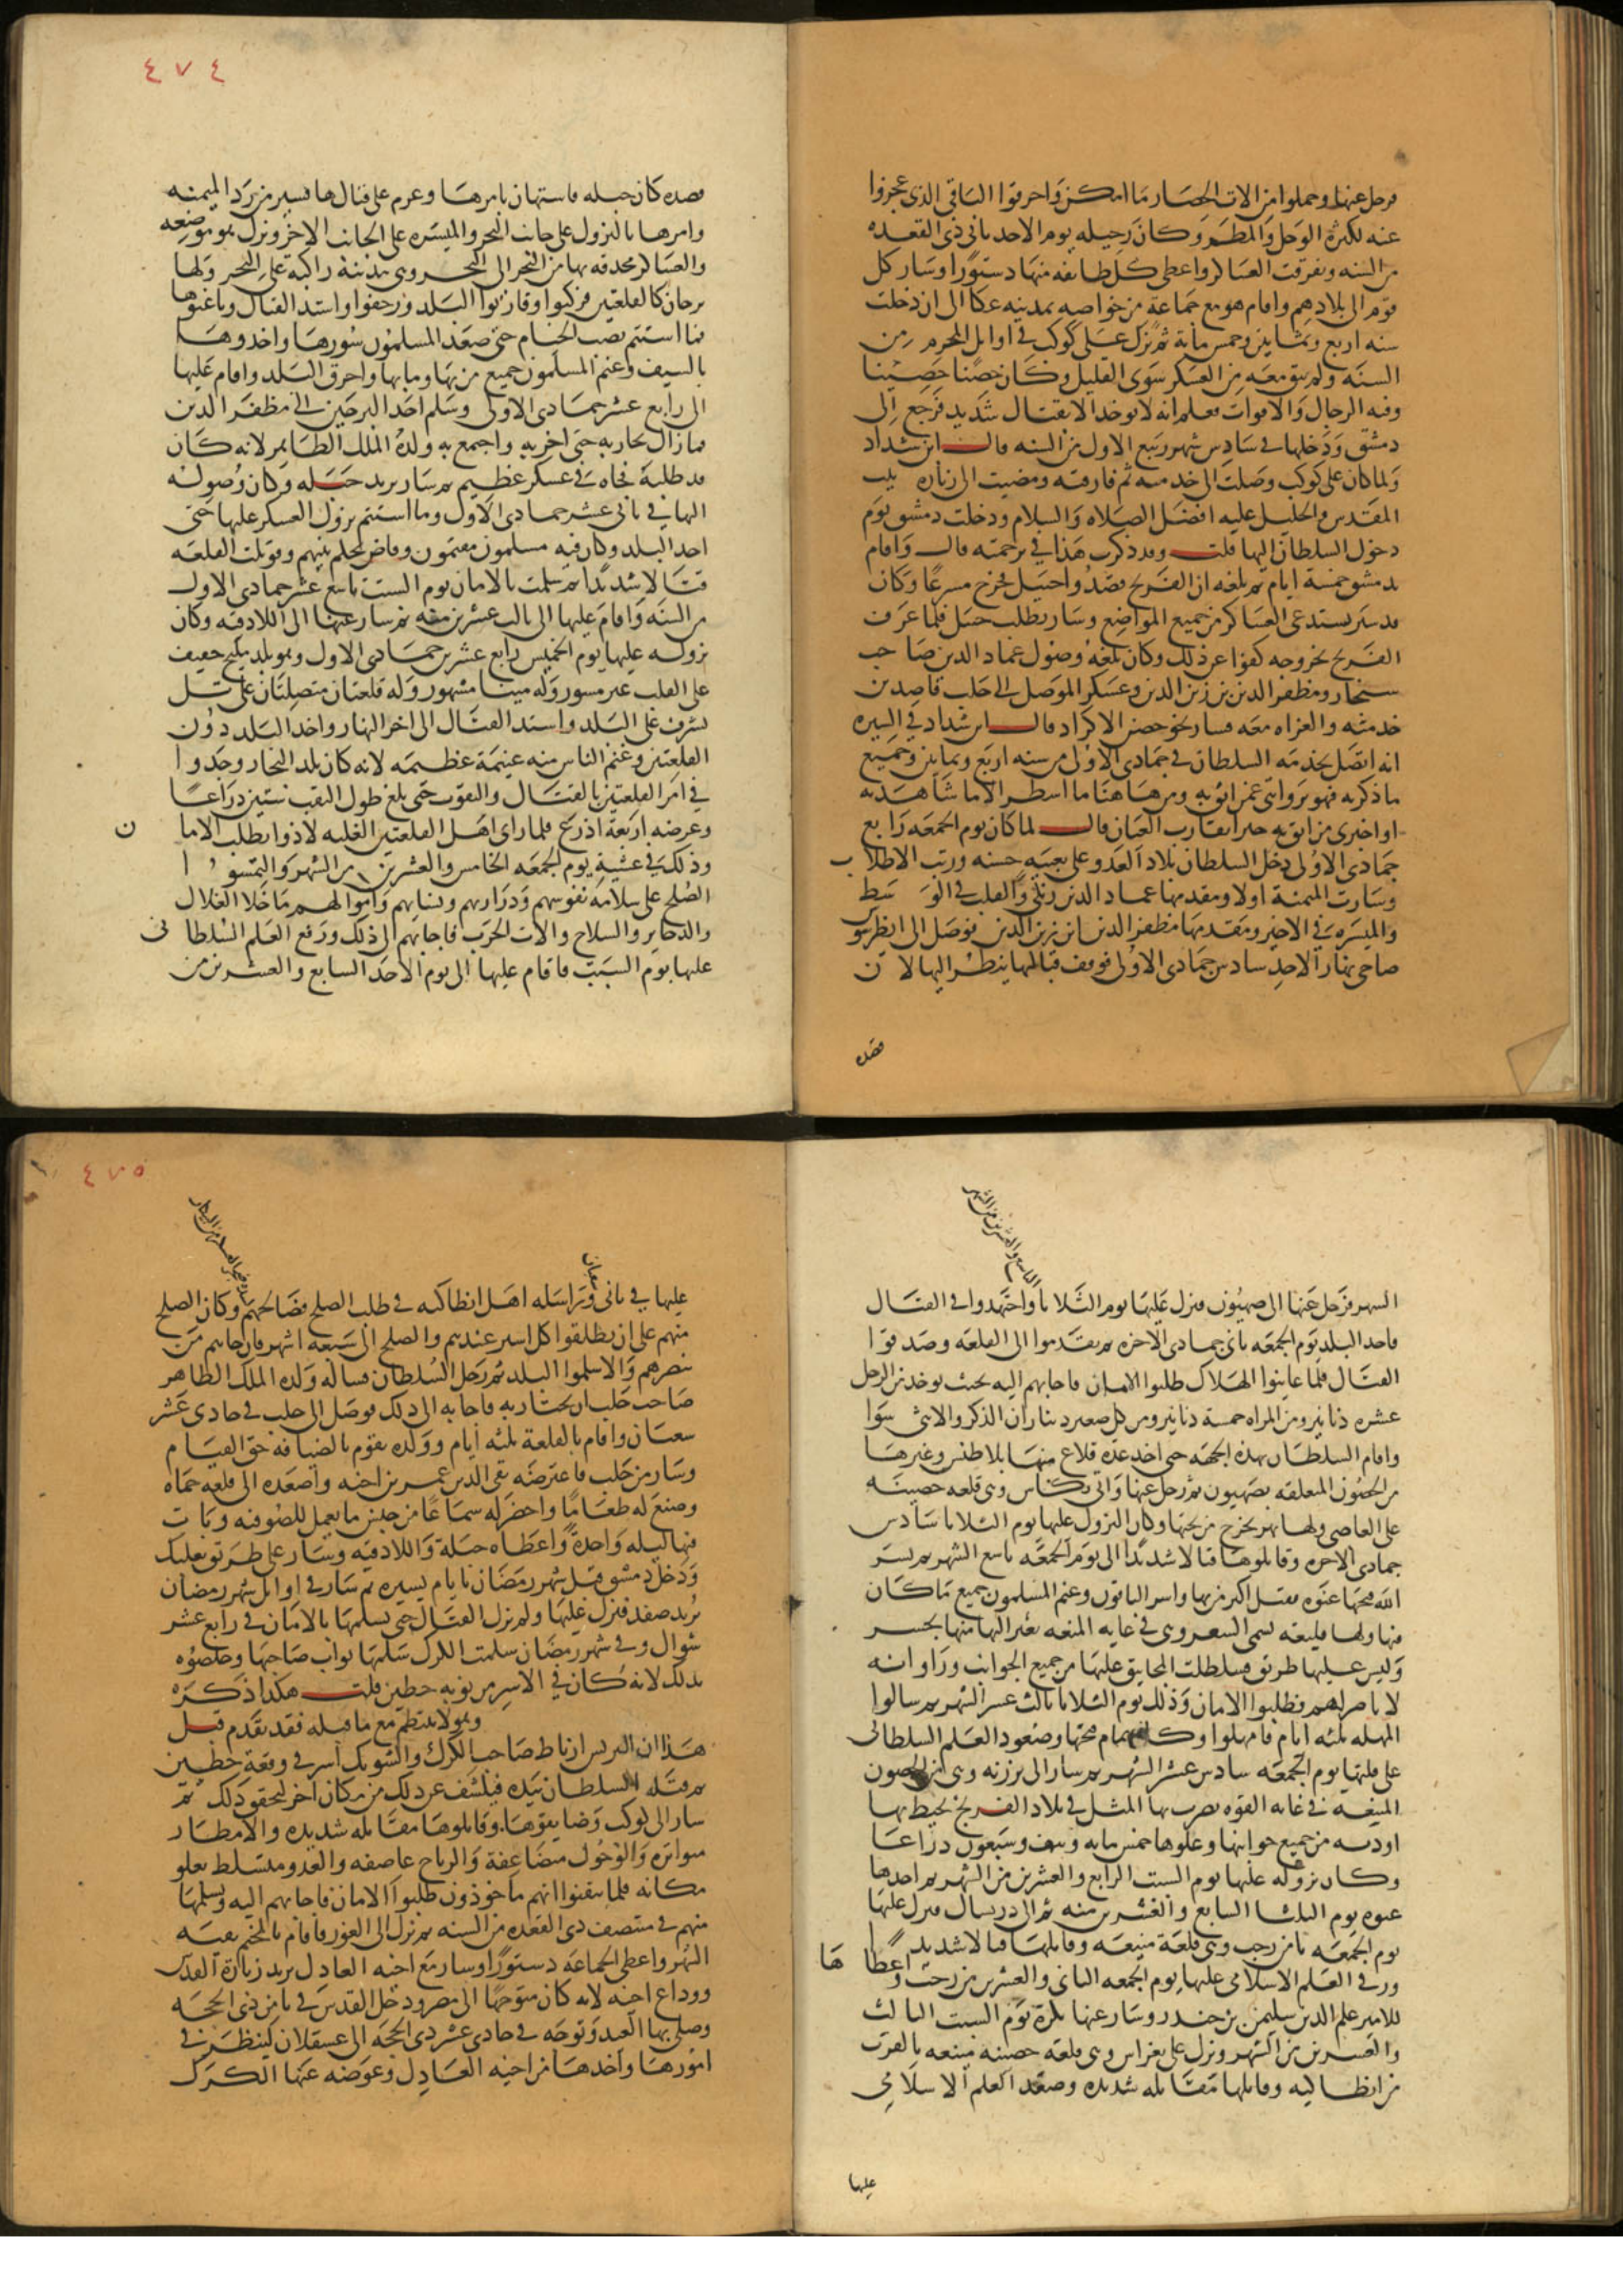 فرحل عنها وحملوا من الات الحصار ما امكن واحرقوا الباقي الذي عجزوا
عنه لكثرة الوحل والمطر وكان رحيله يوم الاحد ثاني ذي القعده
من السنه وتفرقت العساكر واعطى كل طائفه منها دستورا وسار كل
قوم الى بلادهم واقام هو مع جماعة من خواصه بمدينه عكا الى ان دخلت
سنه اربع وثمانين وخمس مائة ثم نزل على كوكب في اوايل المحرم من
السنه ولم يبق معه من العسكر سوى القليل وكان حصنا حصينا
وفيه الرجال والاقوات فعلم انه لا يوخذ الا بقتال شديد فرجع الى
دمشق ودخلها في سادس شهر ربيع الاول من السنه قال ابن شداد
ولما كان على كوكب وصلت الى خدمته ثم فارقته ومضيت الى زيارة بيت
المقدس والخليل عليه افضل الصلاه والسلام ودخلت دمشق يوم
دخول السلطان اليها قلت وقد ذكرت هذا في ترجمته قال واقام
بدمشق خمسة ايام ثم بلغه ان الفرنج قصدوا جبيل فخرج مسرعا وكان
قد سير يستدعى العساكر من جميع المواضع وسار يطلب جبيل فلما عرف
الفرنج بخروجه كفوا عن ذلك وكان بلغه وصول عماد الدين صاحب
سنجار ومظفر الدين بن زين الدين وعسكر الموصل الى حلب قاصدين
خدمته والغزاه معه فسار نحو حصن الاكراد قال ابن شداد في السيره
انه اتصل بخدمه السلطان في جمادى الاولى من سنه اربع وثمانين وجميع
ما ذكرته فهو بروايتى عمن اثق به ومن هاهنا ما اسطر الا ما شاهدته
او اخبرني من اثق به خبرا يقارب العيان قال لما كان يوم الجمعه رابع
جمادى الاولى دخل السلطان بلاد العدو على تعبيه حسنه ورتب الاطلاب
وسارت الميمنة اولا ومقدمها عماد الدين زنكي والقلب في الوسط
والميسره في الاخير ومقدمها مظفر الدين ابن زين الدين فوصل الى انطرسوس
ضاحي نهار الاحد سادس جمادى الاولى فوقف قبالتها ينظر اليها لان
قصده
٤٧٤
قصده كان جبله فاستهان بامرها وعزم على قتالها فسير من رد الميمنه
وامرها بالنزول على جانب البحر والميسره على الجانب الاخر ونزل هو موضعه
والعساكر محدقه بها من البحر الى البحر وهي مدينة راكبه على البحر ولها
برجان كالقلعتين فركبوا وقاربوا البلد وزحفوا واشتد القتال وباغتوها
فما استتم نصب الخيام حتى صعد المسلمون سورها واخذوها
بالسيف وغنم المسلمون جميع من بها وما بها واحرق البلد واقام عليها
الى رابع عشر جمادى الاولى وسلم احد البرجين الى مظفر الدين
فما زال يحاربه حتى اخربه واجتمع به ولده الملك الظاهر لانه كان
قد طلبه فجاه في عسكر عظيم ثم سار يريد جبله وكان وصوله
اليها في ثاني عشر جمادى الاولى وما استتم نزول العسكر عليها حتى
اخذ البلد وكان فيه مسلمون مقيمون وقاض يحكم بينهم وقوتلت القلعه
قتالا شديدا ثم سلمت بالامان يوم السبت تاسع عشر جمادى الاولى
من السنه واقام عليها الى ثالث عشرين منه ثم سار عنها الى اللاذقه وكان
نزوله عليها يوم الخميس رابع عشرين جمادى الاولى وهو بلد مليح خفيف
على القلب غير مسور وله مينا مشهور وله قلعتان متصلتان على تل
يشرف على البلد واشتد القتال الى اخر النهار واخذ البلد دون
القلعتين وغنم الناس منه غنيمة عظيمه لانه كان بلد التجار وجدوا
في امر القلعتين بالقتال والنقوب حتى بلغ طول النقب ستين ذراعا
وعرضه اربعة اذرع فلما راى اهل القلعتين الغلبه لاذوا بطلب الامان
وذلك في عشية يوم الجمعه الخامس والعشرين من الشهر والتمسوا
الصلح على سلامة نفوسهم وذراريهم ونسايهم واموالهم ما خلا الغلال
والذخاير والسلاح والات الحرب فاجابهم الى ذلك ورفع العلم السلطانى
عليها يوم السبت فاقام عليها الى يوم الاحد السابع والعشرين من
التاسع والعشرين من الشهر
الشهر فرحل عنها الى صهيون فنزل عليها يوم الثلاثا واجتهدوا في القتال
فاخذ البلد يوم الجمعه ثاني جمادى الاخره ثم تقدموا الى القلعه وصدقوا
القتال فلما عاينوا الهلاك طلبوا الامان فاجابهم اليه بحيث يوخذ من الرجل
عشره دنانير ومن المراه خمسة دنانير ومن كل صغير ديناران الذكر والانثى سوا
واقام السلطان بهذه الجهه حتى اخذ عدة قلاع منها بلاطنس وغيرها
من الحصون المتعلقه بصهيون ثم رحل عنها واتى بكاس وهي قلعه حصينه
على العاصي ولها نهر يخرج من تحتها وكان النزول عليها يوم الثلاثا سادس
جمادى الاخره وقاتلوها قتالا شديدا الى يوم الجمعه تاسع الشهر ثم يسر
الله فتحها عنوه فقتل اكثر من بها واسر الباقون وغنم المسلمون جميع ما كان
فيها ولها قليعه تسمى الشغر وهي في غايه المنعه يعبر اليها منها بجسر
وليس عليها طريق فسلطت المجانيق عليها من جميع الجوانب وراوا انه
لا ناصر لهم فطلبوا الامان وذلك يوم الثلاثا ثالث عشر الشهر ثم سالوا
المهله ثلثه ايام فامهلوا وكان تمام فتحها وصعود العلم السلطانى
على قلتها يوم الجمعه سادس عشر الشهر ثم سار الى برزيه وهي من الحصون
المنيعه في غايه القوه يضرب بها المثل في بلاد الفرنج يحيط بها
اوديه من جميع جوانبها وعلوها خمس مايه ونيف وسبعون ذراعا
وكان نزوله عليها يوم السبت الرابع والعشرين من الشهر ثم اخذها
عنوه يوم الثلثا السابع والعشرين منه ثم الى دربساك فنزل عليها
يوم الجمعه ثامن رجب وهي قلعة منيعه وقاتلها قتالا شديدا
ورقى العلم الاسلامي عليها يوم الجمعه الثانى والعشرين من رجب واعطاها
للامير علم الدين سليمن بن جندر وسار عنها بكرة يوم السبت الثالث
والعشرين من الشهر ونزل على بغراس وهي قلعه حصينه منيعه بالقرب
من انطاكيه وقاتلها مقاتله شديده وصعد العلم الاسلامي
عليها
٤٧٥
شعبان
عليها في ثانى وتراسله اهل انطاكيه في طلب الصلح فصالحهم وكان الصلح
منهم على ان يطلقوا كل اسير عندهم والصلح الى سبعه اشهر فان جاهم من
ينصرهم والا سلموا البلد ثم رحل السلطان فساله ولده الملك الظاهر
صاحب حلب ان يجتاز به فاجابه الى ذلك فوصل الى حلب في حادى عشر
شعبان واقام بالقلعة ثلثه ايام وولده يقوم بالضيافه حق القيام
وسار من حلب فاعترضه تقى الدين عمر بن اخيه واصعده الى قلعه حماه
وصنع له طعاما واحضر له سماعا من جنس ما يعمل للصوفيه وبات
فيها ليله واحدة واعطاه جبلة واللاذقيه وسار على طريق بعلبك
ودخل دمشق قبل شهر رمضان بايام يسيره ثم سار في اوايل شهر رمضان
يريد صفد فنزل عليها ولم يزل القتال حتى تسلمها بالامان في رابع عشر
شوال وفي شهر رمضان سلمت الكرك سلمها نواب صاحبها وخلصوه
بذلك لانه كان في الاسر من نوبه حطين قلت هكذا ذكره
وهو لا ينتظم مع ما قبله فقد تقدم قبل
هذا ان البرنس ارناط صاحب الكرك والشوبك اسر في وقعة حطين
ثم قتله السلطان بيده فيكشف عن ذلك من مكان اخر لتحقق ذلك ثم
سار الى كوكب وضايقوها وقاتلوها مقاتله شديده والامطار
متواتره والوحول متضاعفة والرياح عاصفه والعدو متسلط بعلو
مكانه فلما تيقنوا انهم ماخوذون طلبوا الامان فاجابهم اليه وتسلمها
منهم في منتصف ذى القعده من السنه ثم نزل الى الغور فاقام بالمخيم بقيه
الشهر واعطى الجماعة دستورا وسار مع اخيه العادل يريد زيارة القدس
ووداع اخيه لانه كان متوجها الى مصر ودخل القدس في ثامن ذي الحجه
وصلى بها العيد وتوجه في حادى عشر ذى الحجه الى عسقلان لينظر في
امورها واخذها من اخيه العادل وعوضه عنها الكرك